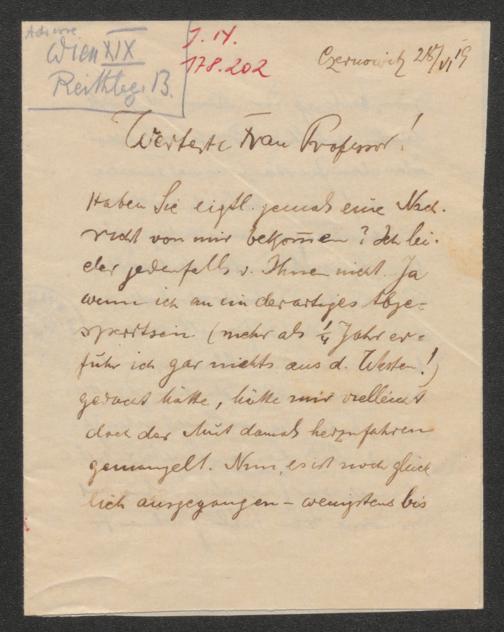 Adresse
Wien XIX
Reithleg. 13.
J. N.
178.202
Czernowitz 28/VI 19
Werteste Frau Professor!
Haben Sie eigtl. jemals eine Nach-
richt von mir bekom̄en? Ich lei-
der jedenfalls v. Ihnen nicht. Ja
wenn ich an ein derartiges Abge-
sperrtsein (mehr als 1/4 Jahr er-
fuhr ich gar nichts aus d. Westen!)
gedacht hätte, hätte mir vielleicht
doch der Mut damals herzufahren
gemangelt. Nun, es ist noch glück
lich ausgegangen – wenigstens bis